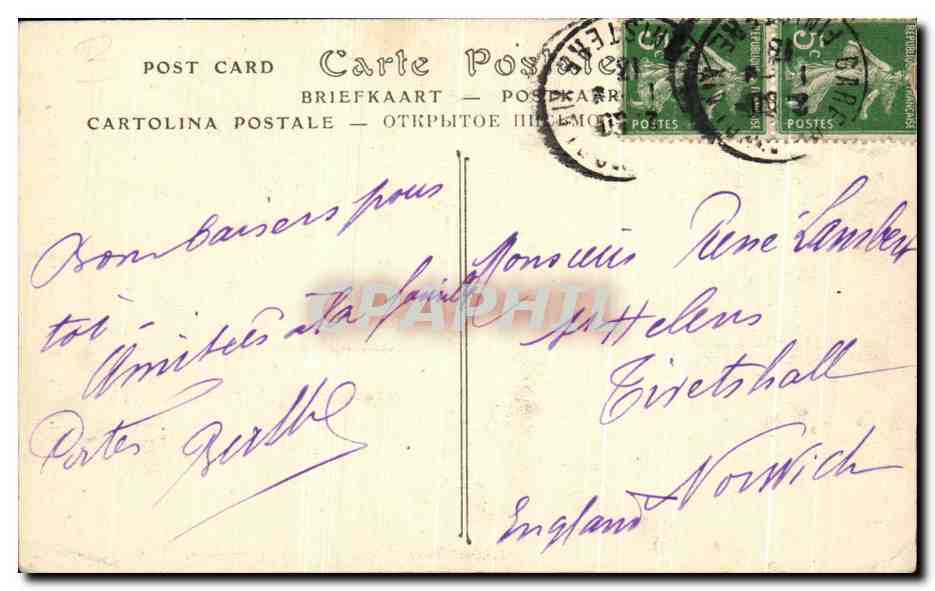 POST CARD Carte Postale
BRIEFKAART — POSTKAART
CARTOLINA POSTALE — ОТКРЫТОЕ ПИСЬМО
5c
POSTES
REPUBLIQUE FRANÇAISE
5c
POSTES
REPUBLIQUE FRANÇAISE
FINISTERE
Bons baisers pour
toi -
Amitiés à la famille
Portes Berthe
CPAPHIL
Monsieur René Lambert
St Helens
Tivetshall
Norwich
England